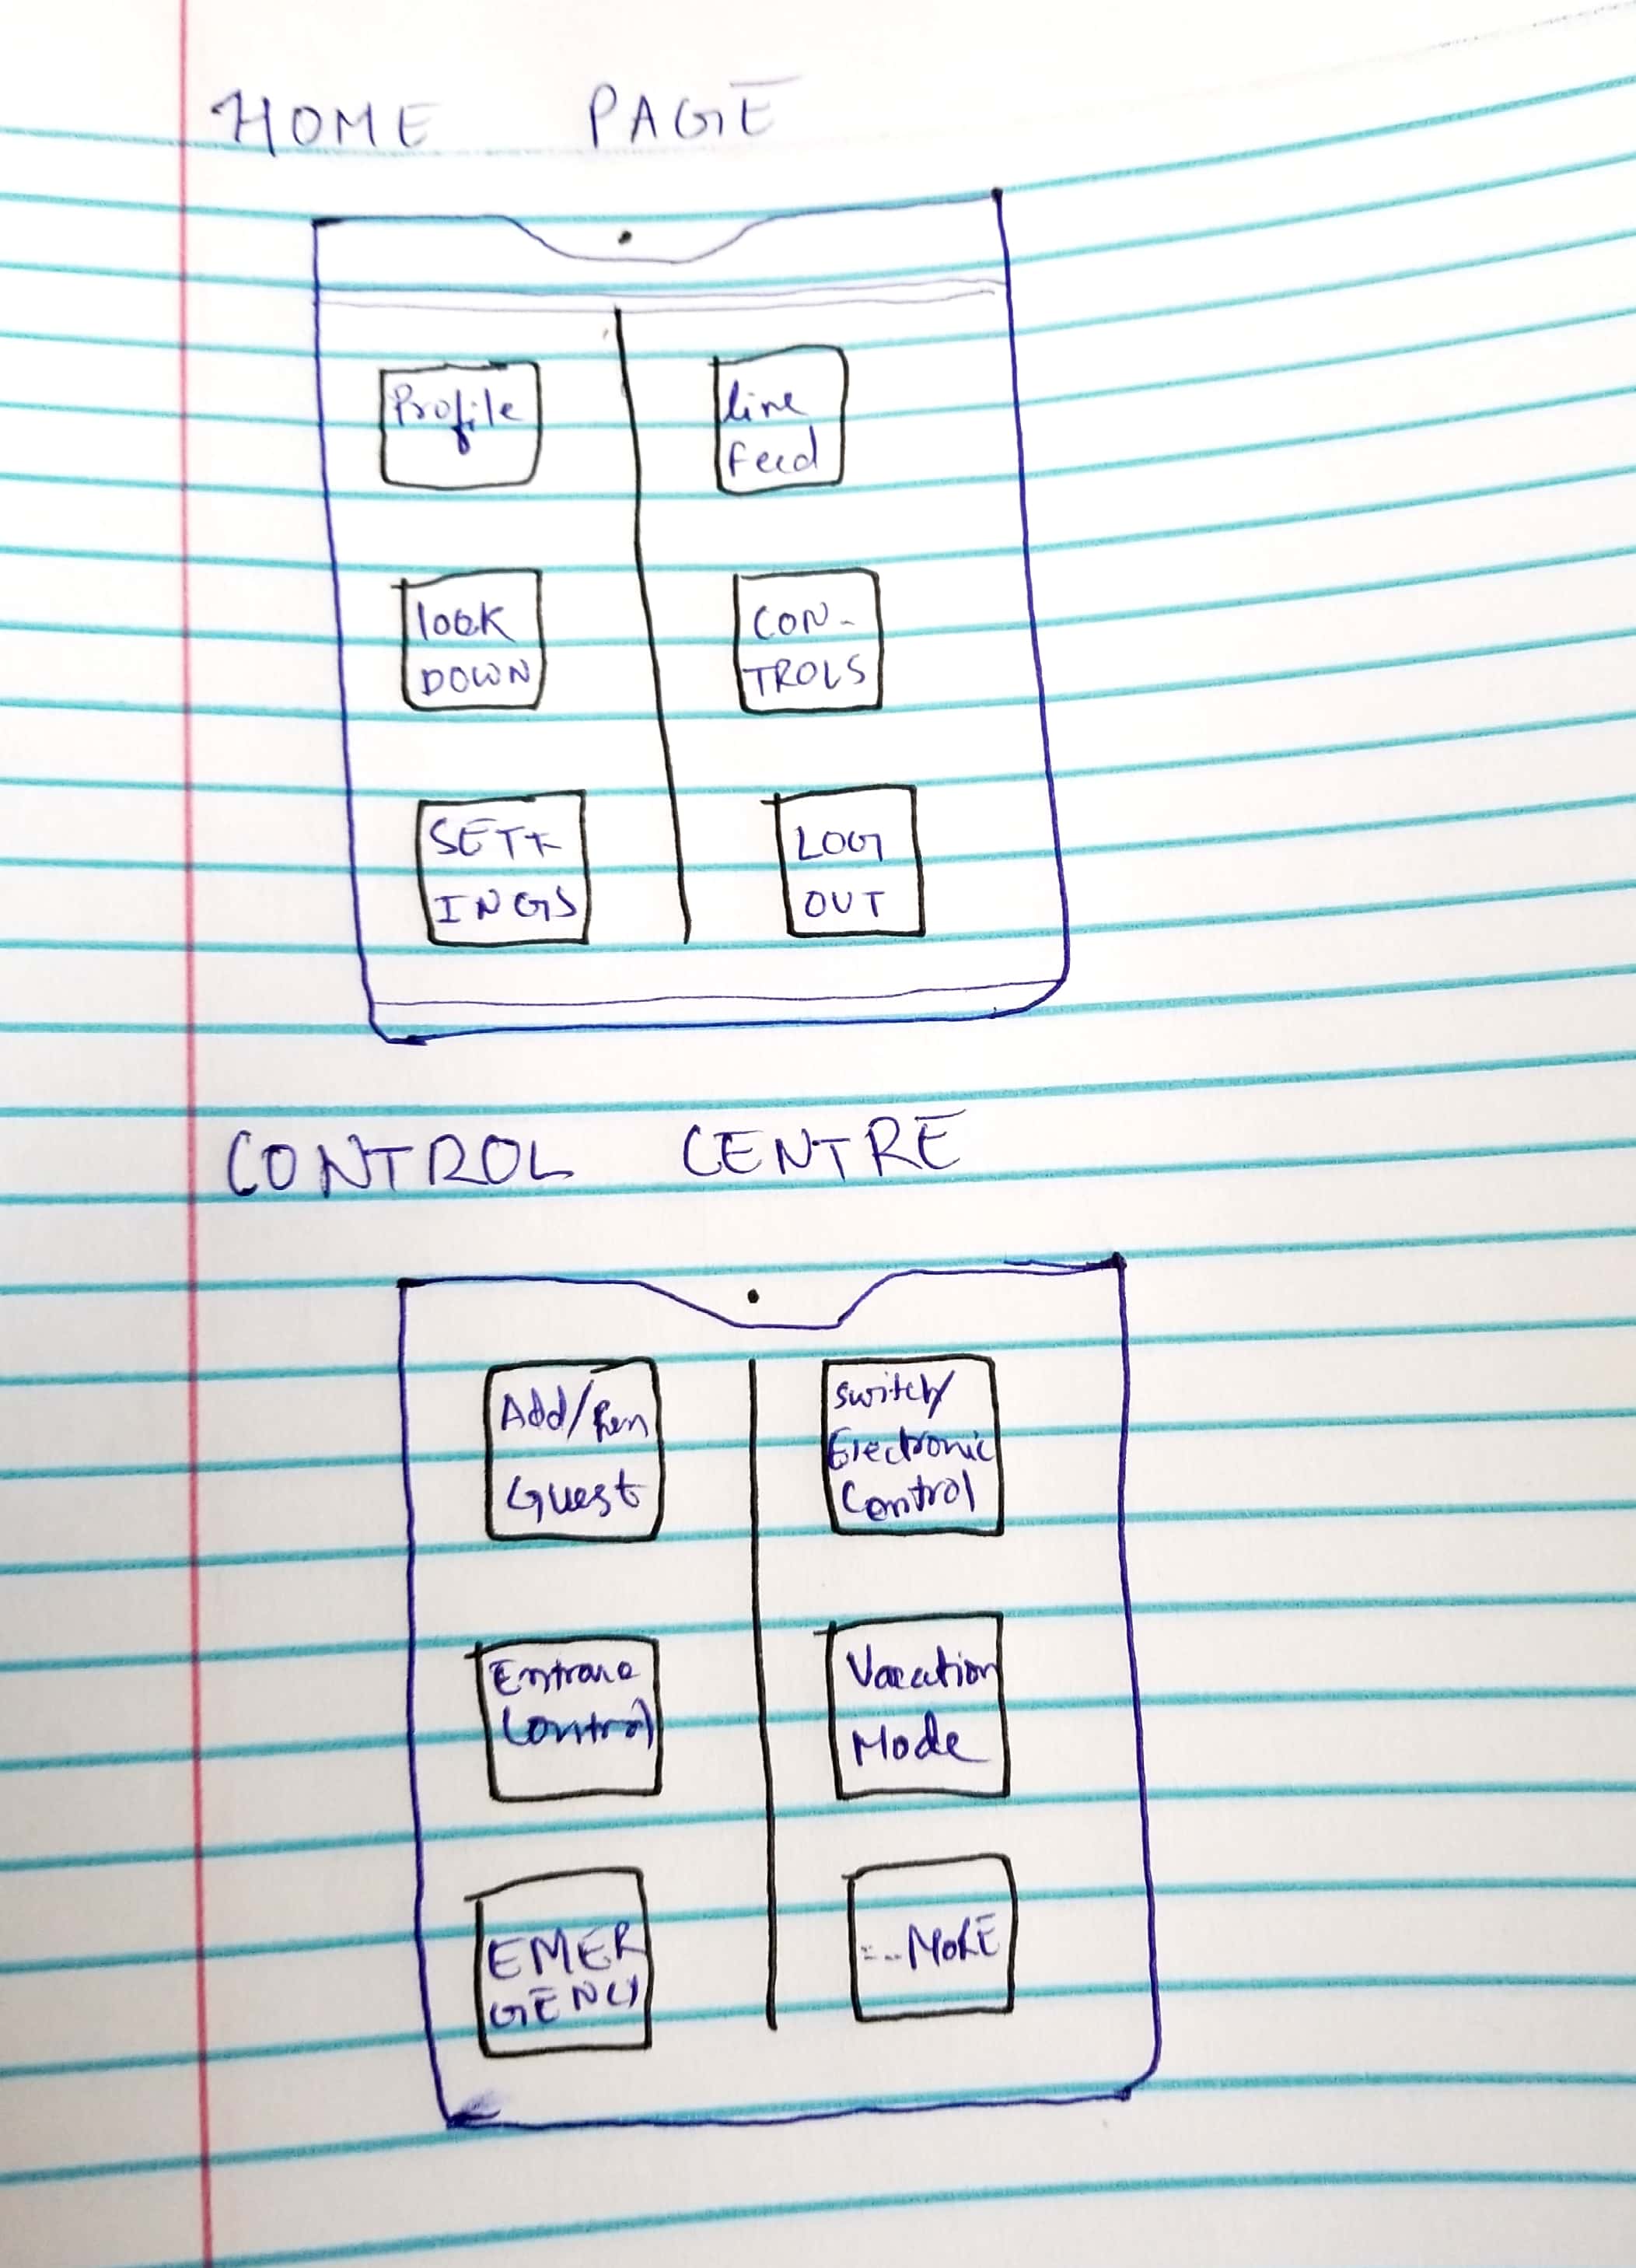 HOME PAGE
Profile
live
feed
lock
DOWN
CON-
TROLS
SETT
INGS
LOG
OUT
CONTROL CENTRE
Add/Rem
Guest
switch/
Electronic
Control
Entrance
Control
Vacation
Mode
EMER
GENCY
...MORE